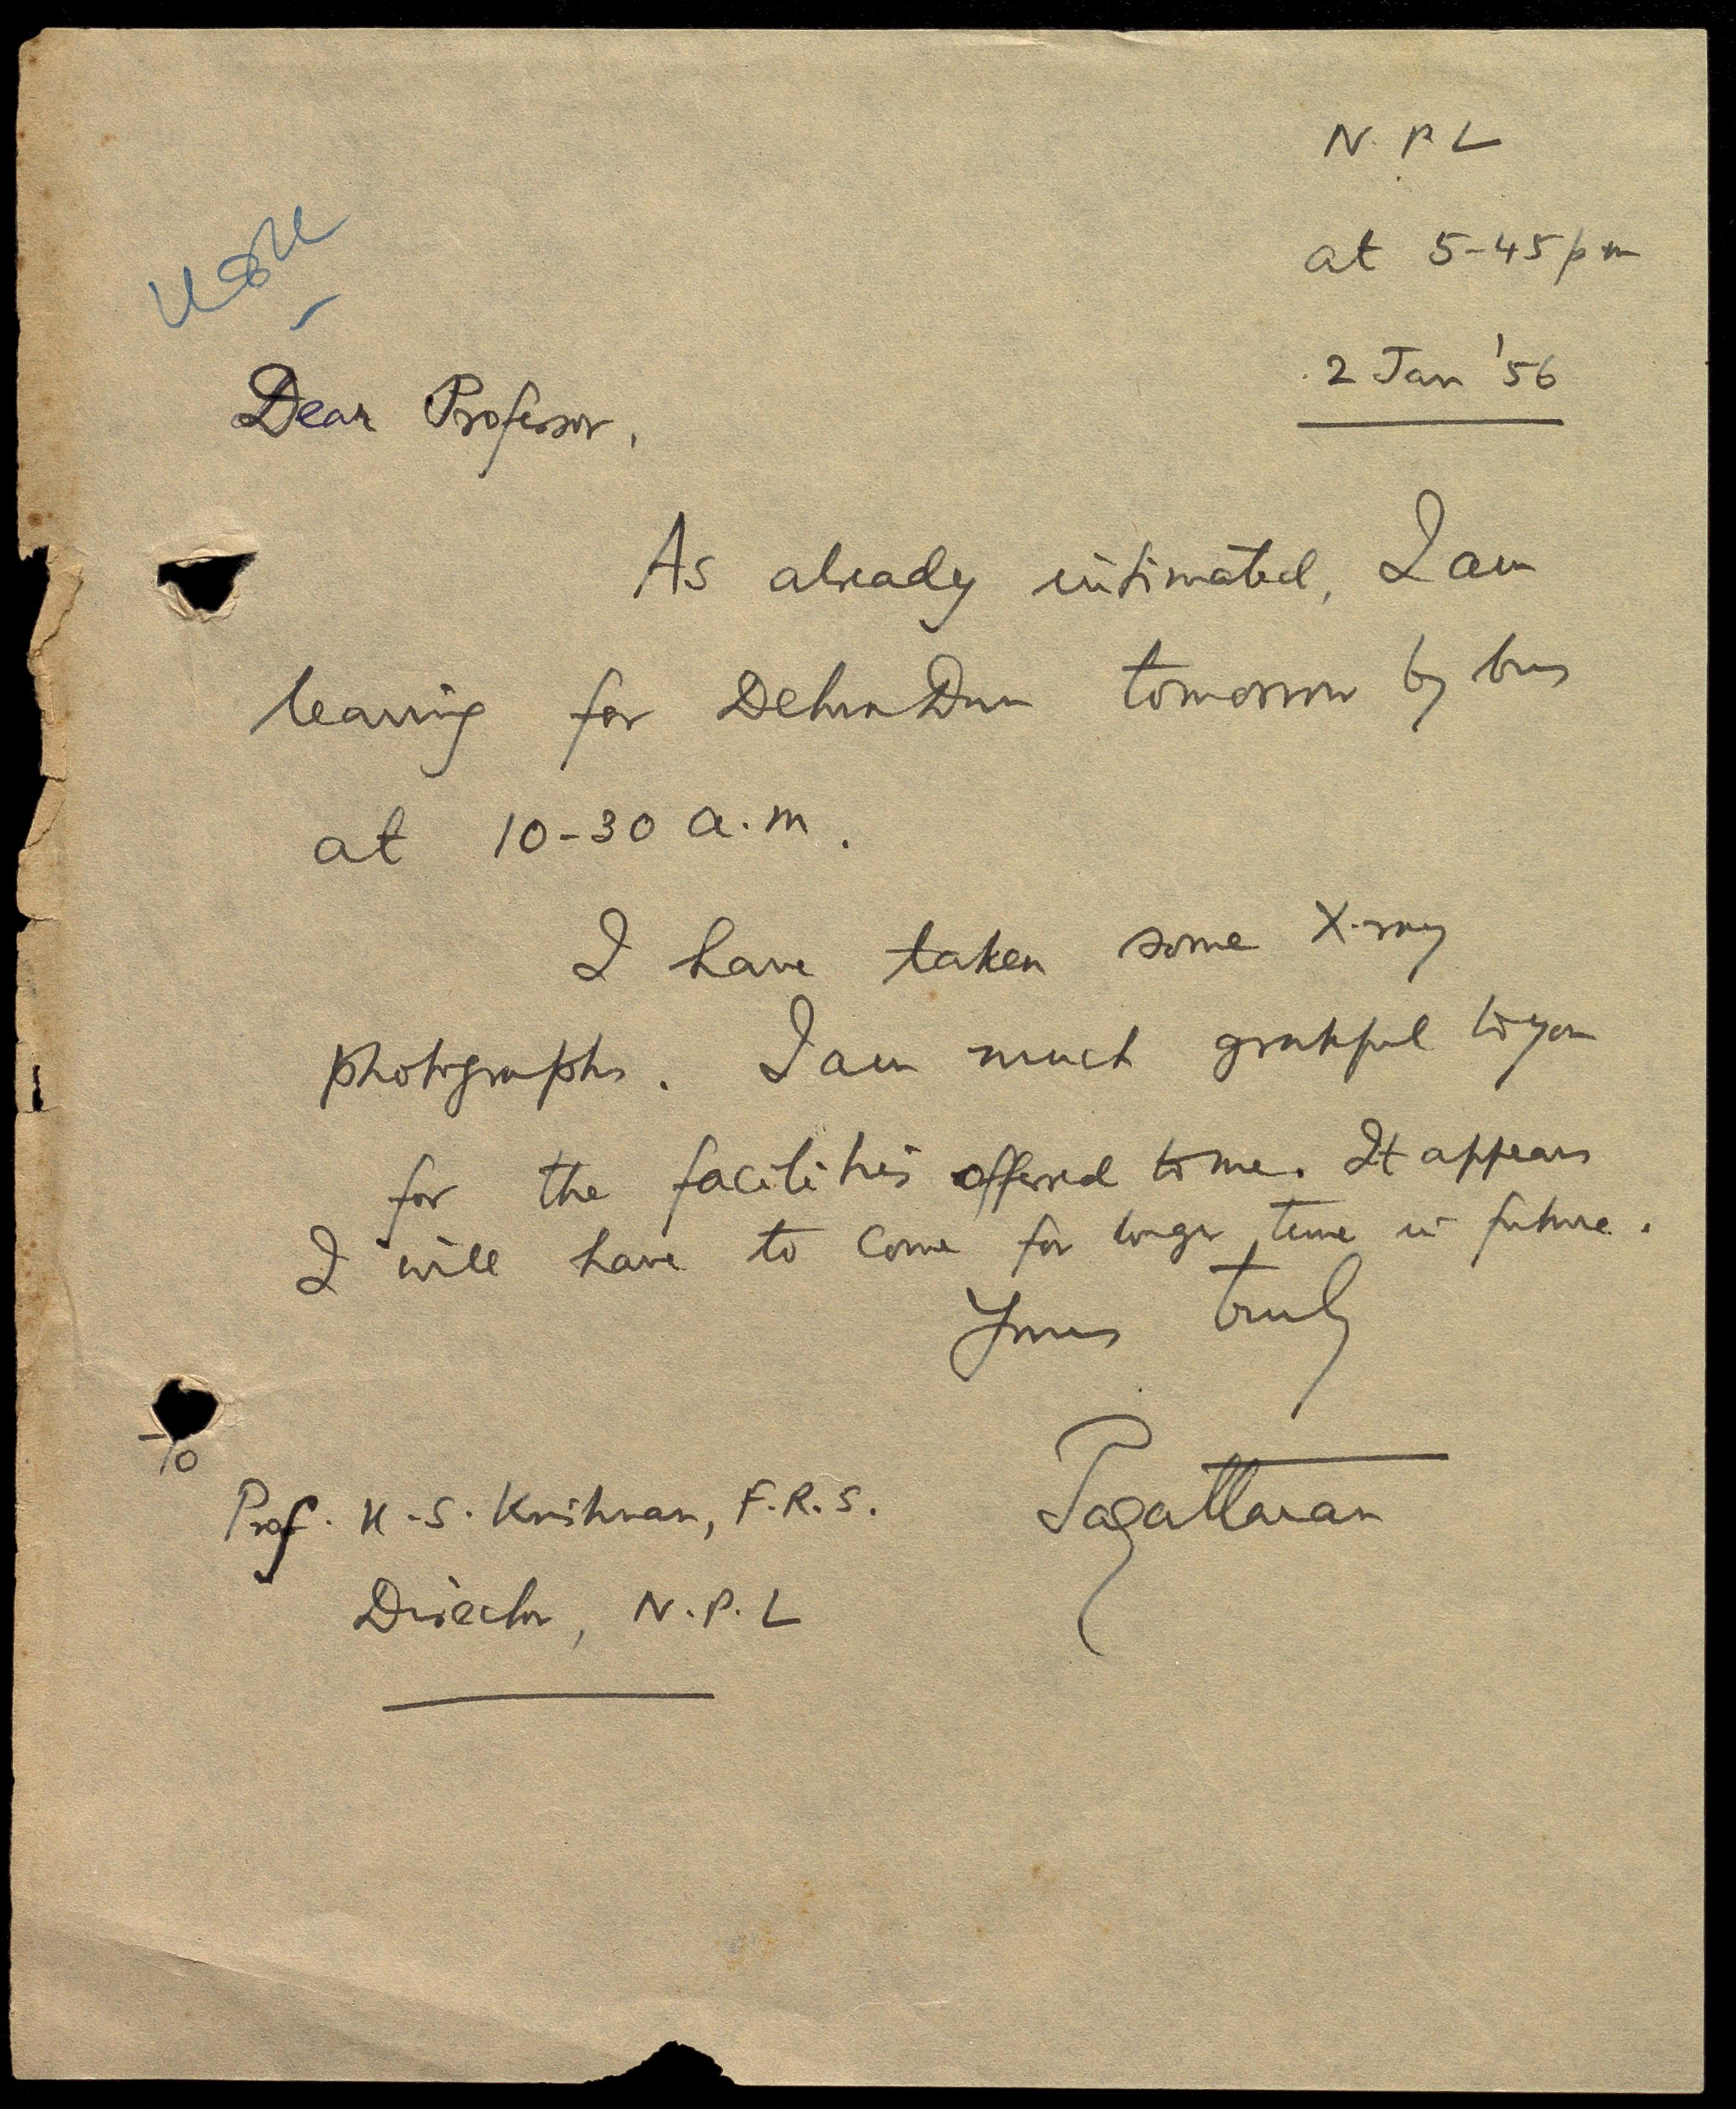 N. P. L
at 5-45 pm
2 Jan '56
Dear Professor,
As already intimated, I am
leaving for DehraDun tomorrow by bus
at 10-30 a.m.
I have taken some X-ray
photographs. I am much grateful to you
for the facilities offered to me. It appears
I will have to come for longer time in future.
Yours truly
To
Prof. K.S. Krishnan, F.R.S.
Director, N.P.L